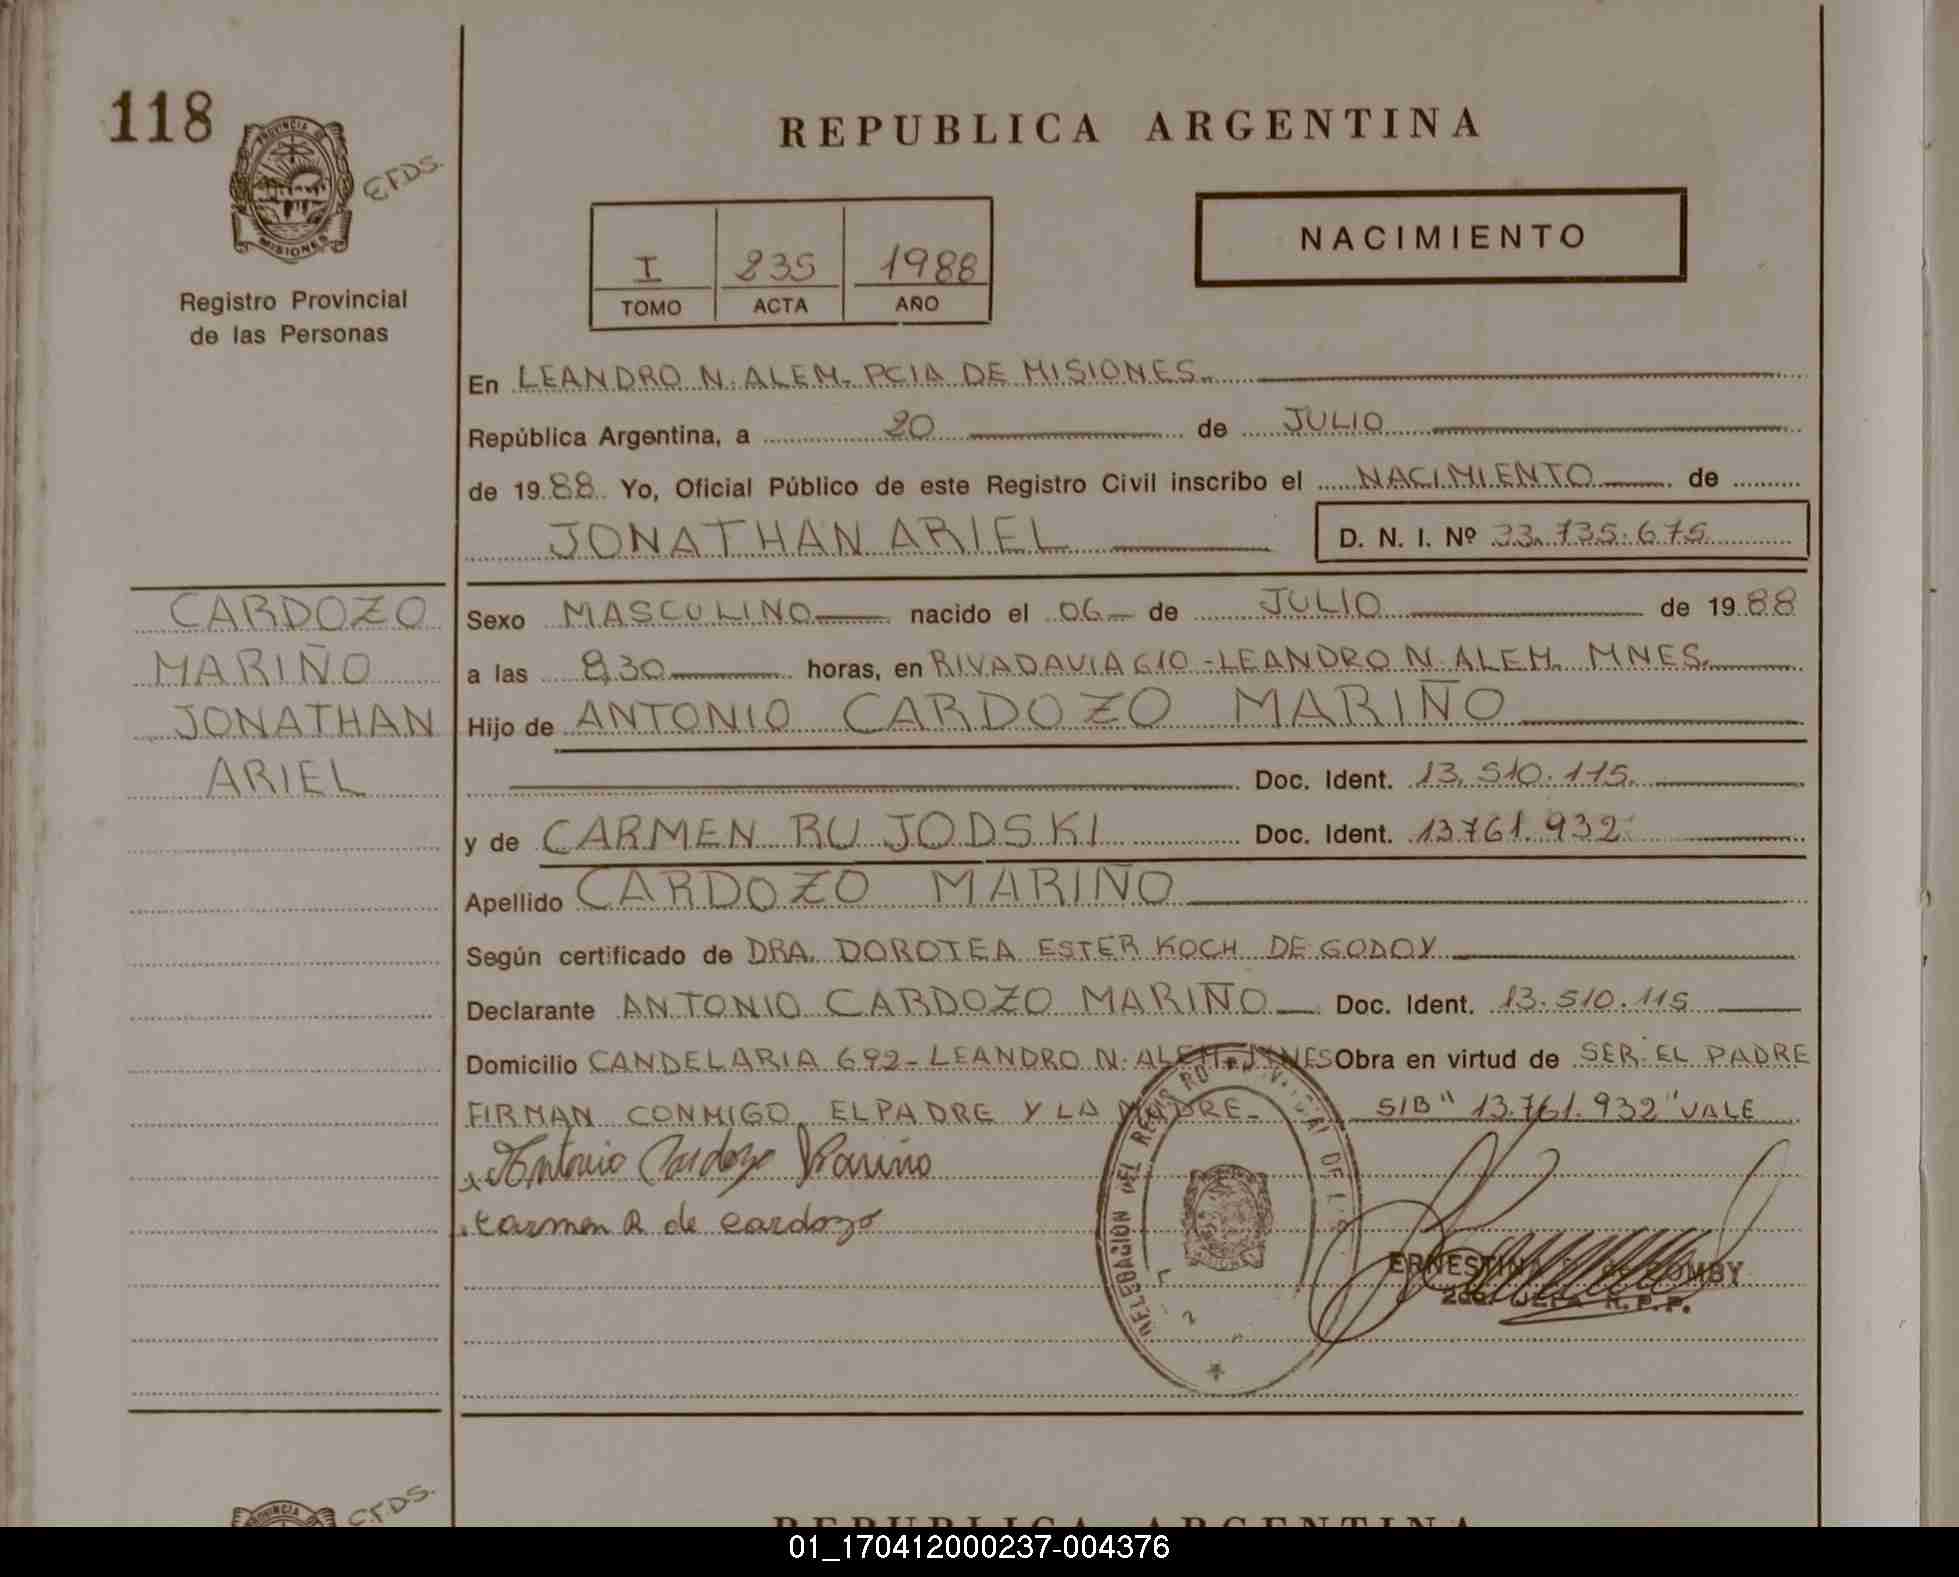 118
PROVINCIA DE
MISIONES
Registro Provincial
de las Personas
REPUBLICA ARGENTINA
NACIMIENTO
I 235 1988
TOMO ACTA AÑO
En LEANDRO N. ALEM. PCIA DE MISIONES.
República Argentina, a 20 de JULIO
de 1988. Yo, Oficial Público de este Registro Civil inscribo el NACIMIENTO de
JONATHAN ARIEL D. N. I. Nº 33.735.675
CARDOZO
MARIÑO
JONATHAN
ARIEL
Sexo MASCULINO nacido el 06 de JULIO de 1988
a las 8,30 horas, en RIVADAVIA 610 - LEANDRO N. ALEM. MNES.
Hijo de ANTONIO CARDOZO MARIÑO
Doc. Ident. 13.510.115.
y de CARMEN RUJODSKI Doc. Ident. 13.761.932
Apellido CARDOZO MARIÑO
Según certificado de DRA. DOROTEA ESTER KOCH DE GODOY
Declarante ANTONIO CARDOZO MARIÑO Doc. Ident. 13.510.115
Domicilio CANDELARIA 692 - LEANDRO N. ALEM. MNES Obra en virtud de SER EL PADRE
FIRMAN CONMIGO EL PADRE Y LA MADRE. S/B "13.761.932" VALE
Antonio Cardozo Mariño
Carmen R de Cardozo
DELEGACION DEL REGISTRO PROVINCIAL DE
ERNESTINA ROMBY
2da. JEFA R.P.P.
REPUBLICA ARGENTINA
01_170412000237-004376